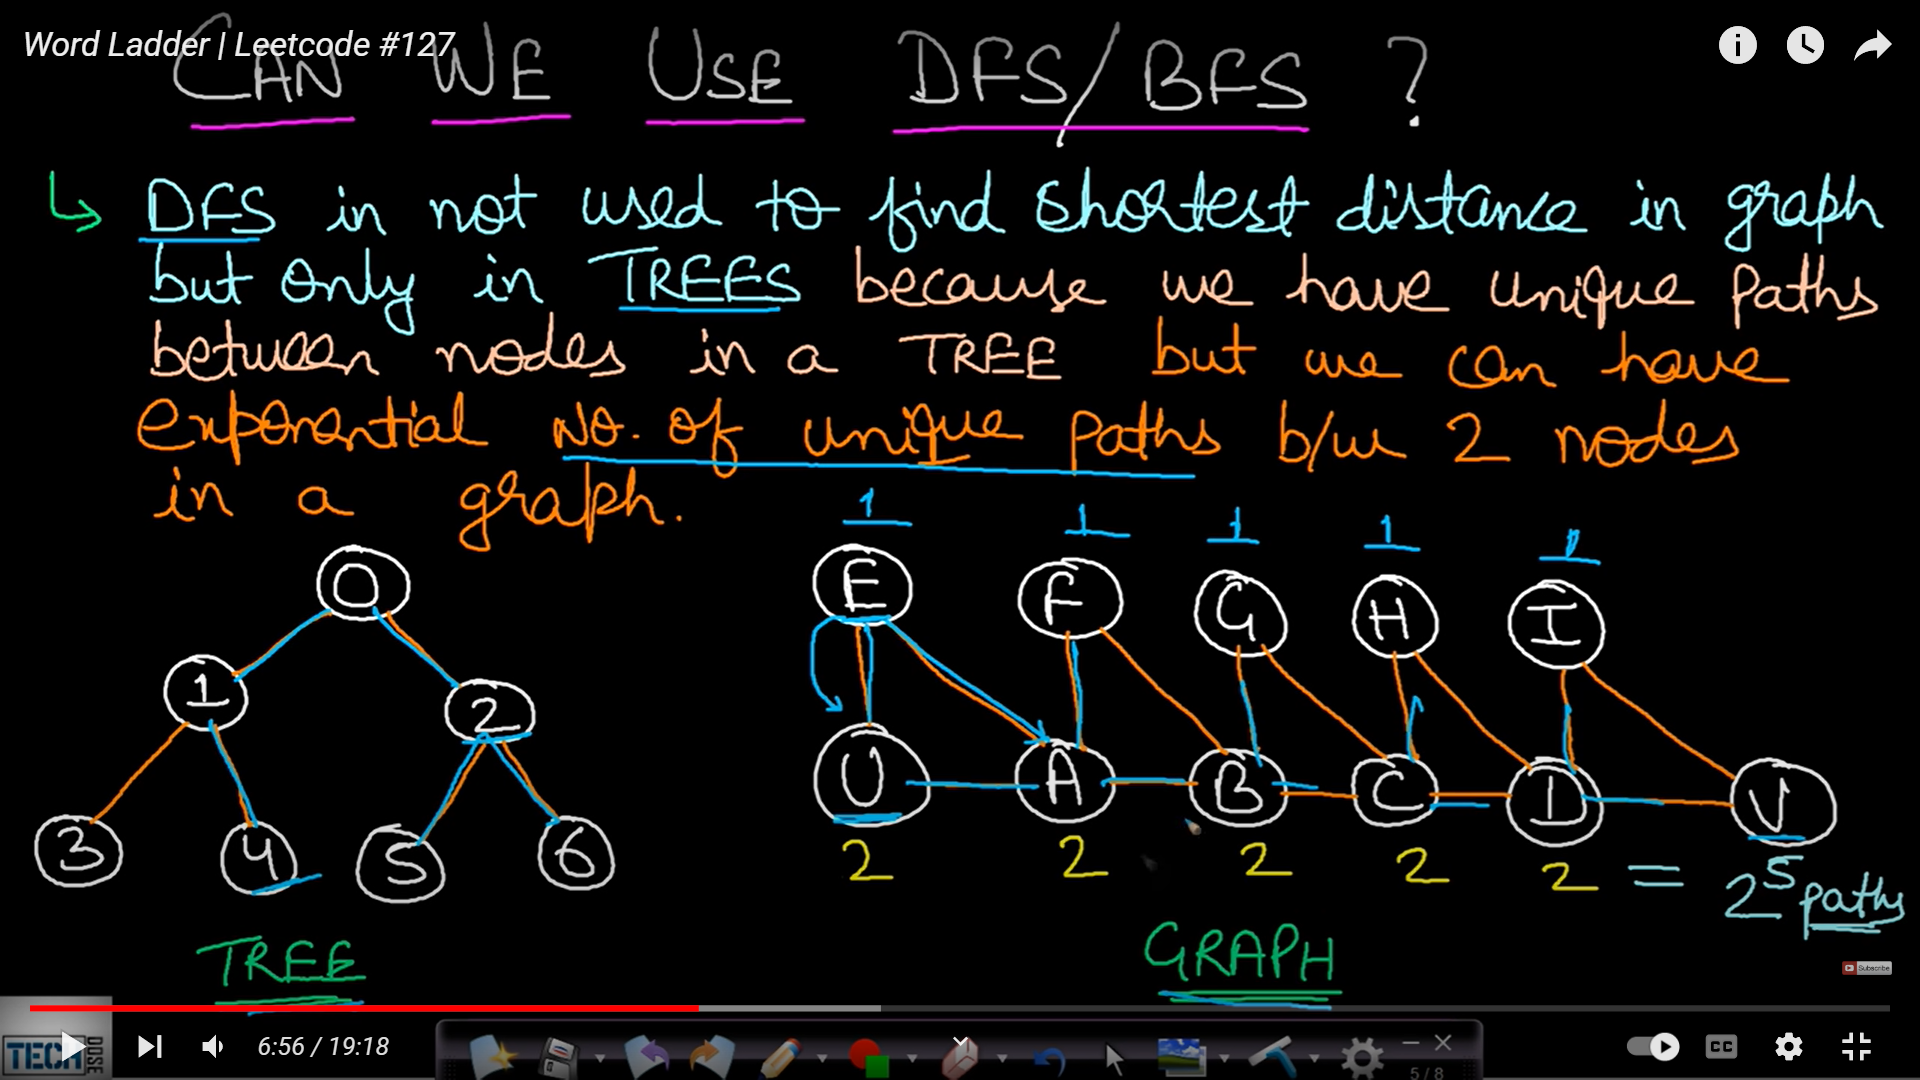 Word Ladder | Leetcode #127
CAN WE USE DFS/BFS ?
DFS in not used to find shortest distance in graph
but only in TREES because we have unique paths
between nodes in a TREE but we can have
exponential No. of unique paths b/w 2 nodes
in a graph.
1 1 1 1 1
0
1 2
3 4 5 6
E F G H I
U A B C D V
2 2 2 2 2 = 2^5 paths
TREE
GRAPH
Subscribe
TECH DOSE
6:56 / 19:18
CC
5 / 8